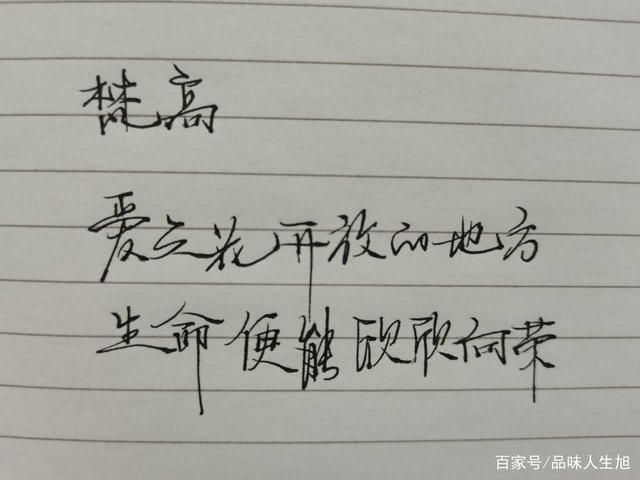 梵高
爱之花开放的地方
生命便能欣欣向荣
百家号/品味人生旭